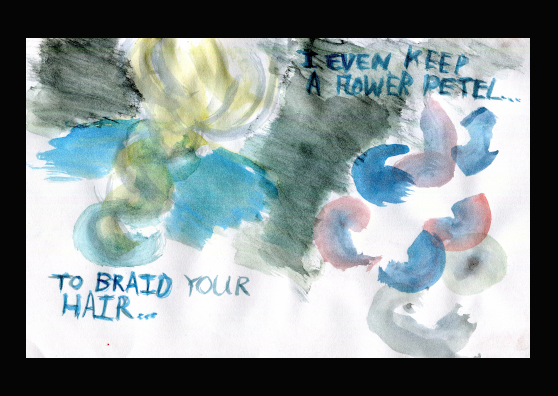 I EVEN KEEP
A FLOWER PETEL...
TO BRAID YOUR
HAIR...